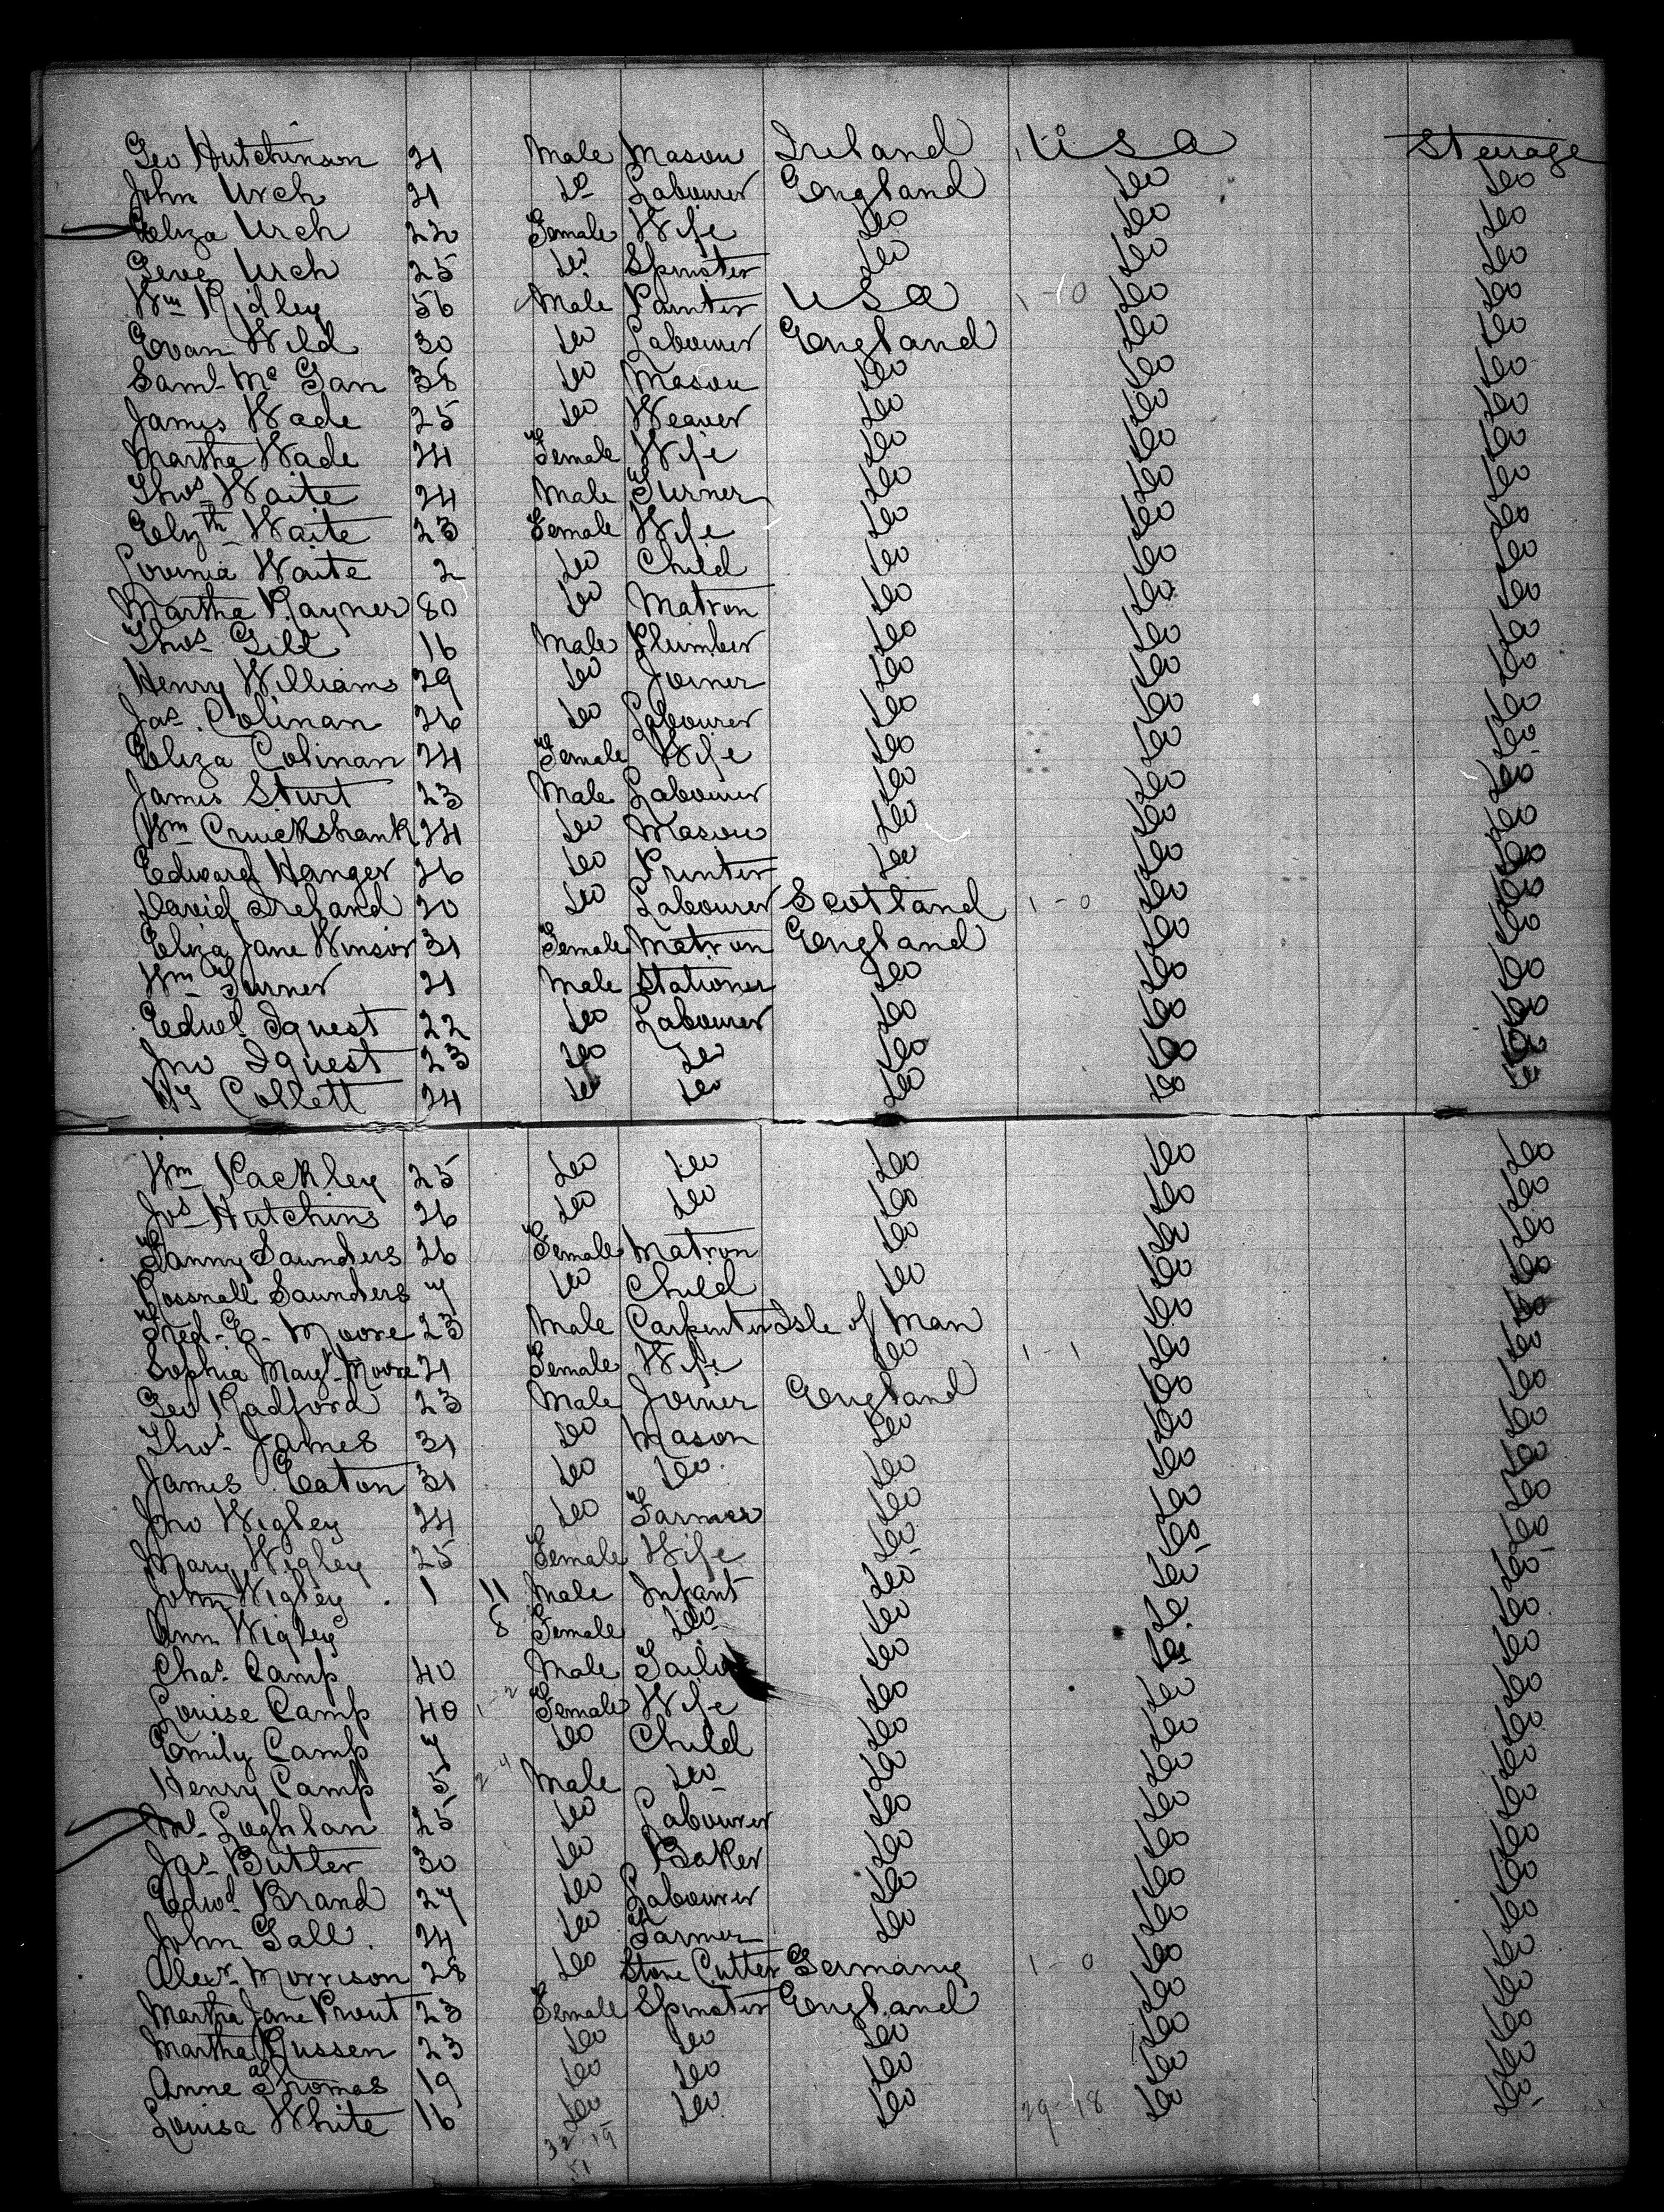 Geo Hutchinson 21 Male Mason Ireland USA Steerage
John Urch 21 Do Labourer England Do Do
Eliza Urch 22 Female Wife Do Do Do
Urch 25 Do Spinster Do Do Do
Wm Ridley 56 Male Painter USA 1-0 Do Do
Evan Wild 30 Do Labourer England Do Do
Saml Mc Gan 38 Do Mason Do Do Do
James Wade 25 Do Weaver Do Do Do
Martha Wade 24 Female Wife Do Do Do
Thos Waite 24 Male Turner Do Do Do
Elizth Waite 23 Female Wife Do Do Do
Lovinia Waite 2 Do Child Do Do Do
Martha Rayner 80 Do Matron Do Do Do
Thos Gill 16 Male Plumber Do Do Do
Henry Williams 29 Do Joiner Do Do Do
Jas Colinan 26 Do Labourer Do Do Do
Eliza Colinan 24 Female Wife Do Do Do
James Sturt 23 Male Labourer Do Do Do
Wm Cruickshank 24 Do Mason Do Do Do
Edward Hanger 26 Do Printer Do Do Do
David Ireland 20 Do Labourer Scotland 1-0 Do Do
Eliza Jane Winsor 31 Female Matron England Do Do
Wm Turner 21 Male Stationer Do Do Do
Edwd Iquest 22 Do Labourer Do Do Do
Jno Iquest 23 Do Do Do Do Do
Collett 24 Do Do Do Do Do
Wm Packley 25 Do Do Do Do Do
Jos Hutchins 26 Do Do Do Do Do
Fanny Saunders 26 Female Matron Do Do Do
Rossnall Saunders 7 Do Child Do Do Do
Fred. E. Moore 23 Male Carpenter Isle of Man Do Do
Sophia Margt Moore 21 Female Wife Do 1-1 Do Do
Geo Radford 23 Male Joiner England Do Do
Thos James 31 Do Mason Do Do Do
James Eaton 31 Do Do Do Do Do
Jno Wigley 24 Do Farmer Do Do Do
Mary Wigley 25 Female Wife Do Do Do
John Wigley 1 11 Male Infant Do Do Do
Ann Wigley 8 Female Do Do Do Do
Chas Camp 40 Male Tailor Do Do Do
Louise Camp 40 1-2 Female Wife Do Do Do
Emily Camp 7 Do Child Do Do Do
Henry Camp 5 Male Do Do Do Do
Ml Loghlan 25 Do Labourer Do Do Do
Jas Butler 30 Do Baker Do Do Do
Edwd Brand 27 Do Labourer Do Do Do
John Gall 24 Do Farmer Do Do Do
Alexr Morrison 28 Do Stone Cutter Germany 1-0 Do Do
Martha Jane Prout 23 Female Spinster England Do Do
Martha Russen 23 Do Do Do Do Do
Anne Thomas 19 Do Do Do Do Do
Louisa White 16 Do Do Do 29-18 Do Do
32 19
51